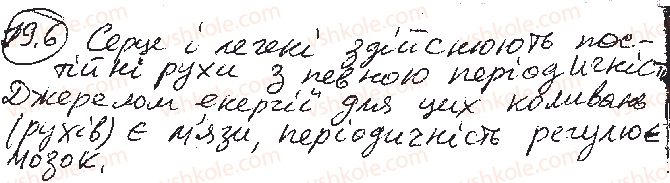 19.6 Серце і легені здійснюють пос-
тійні рухи з певною періодичніст
Джерелом енергії для цих коливань
(рухів) є м'язи, періодичність регулює
мозок.